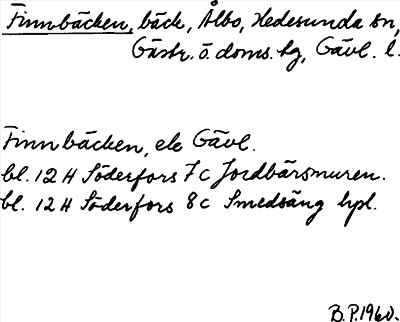 Finnbäcken, bäck, Ålbo, Hedesunda sn,
Gästr. ö. doms. hg, Gävl. l.
Finnbäcken, ek Gävl.
bl. 12 H Söderfors 7 c Jordbärsmuren.
bl. 12 H Söderfors 8 c Smedsäng hpl.
B.P. 1960.